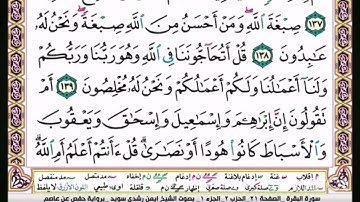 ١٣٧ صِبْغَةَ ٱللَّهِ وَمَنْ أَحْسَنُ مِنَ ٱللَّهِ صِبْغَةً وَنَحْنُ لَهُۥ
عَٰبِدُونَ ١٣٨ قُلْ أَتُحَآجُّونَنَا فِى ٱللَّهِ وَهُوَ رَبُّنَا وَرَبُّكُمْ
وَلَنَآ أَعْمَٰلُنَا وَلَكُمْ أَعْمَٰلُكُمْ وَنَحْنُ لَهُۥ مُخْلِصُونَ ١٣٩ أَمْ
تَقُولُونَ إِنَّ إِبْرَٰهِۦمَ وَإِسْمَٰعِيلَ وَإِسْحَٰقَ وَيَعْقُوبَ
وَٱلْأَسْبَاطَ كَانُوا۟ هُودًا أَوْ نَصَٰرَىٰ قُلْ ءَأَنتُمْ أَعْلَمُ أَمِ ٱللَّهُ
سورة البقرة . الصفحة ٢١ . الحزب ٢ . الجزء ١ . بصوت الشيخ أيمن رشدي سويد . برواية حفص عن عاصم